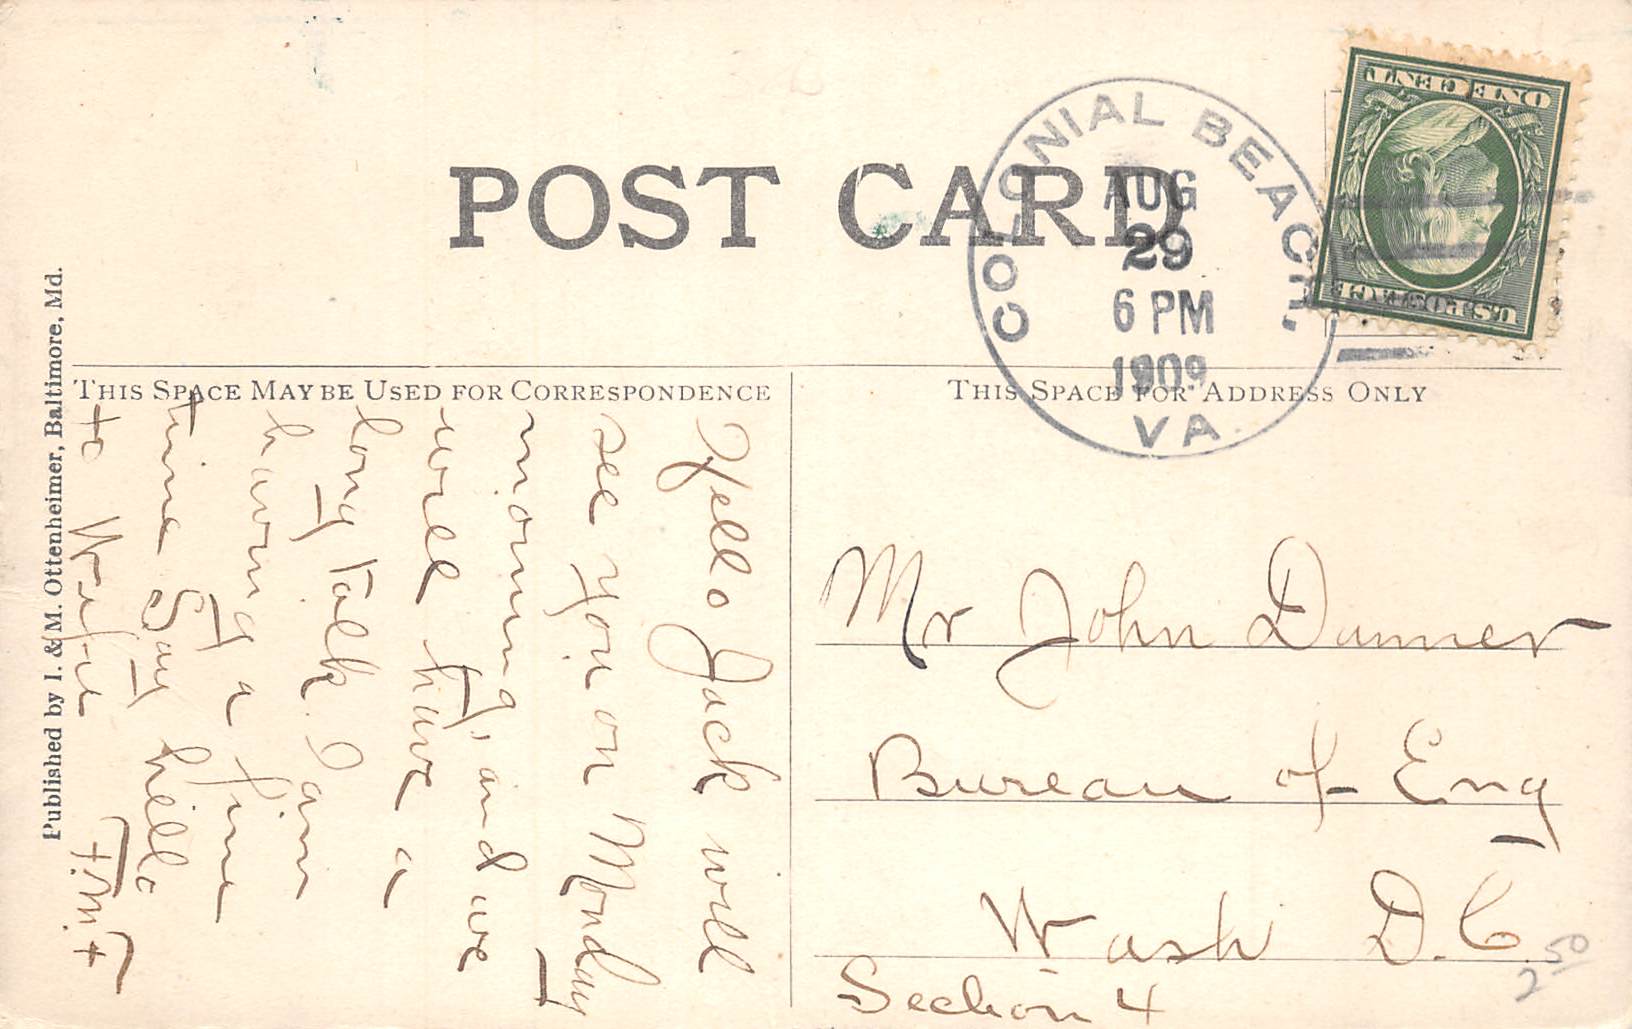 POST CARD
COLONIAL BEACH,
AUG
29
6 PM
1909
VA.
ONE CENT
U.S. POSTAGE
THIS SPACE MAY BE USED FOR CORRESPONDENCE
THIS SPACE FOR ADDRESS ONLY
Published by I. & M. Ottenheimer, Baltimore, Md.
Hello Jack will
see you on Monday
morning, and we
will have a
long talk. I am
having a fine
time Say hello
to Wifie
Mr John Danner
Bureau of Eng
Wash D.C.
Section 4
2 50